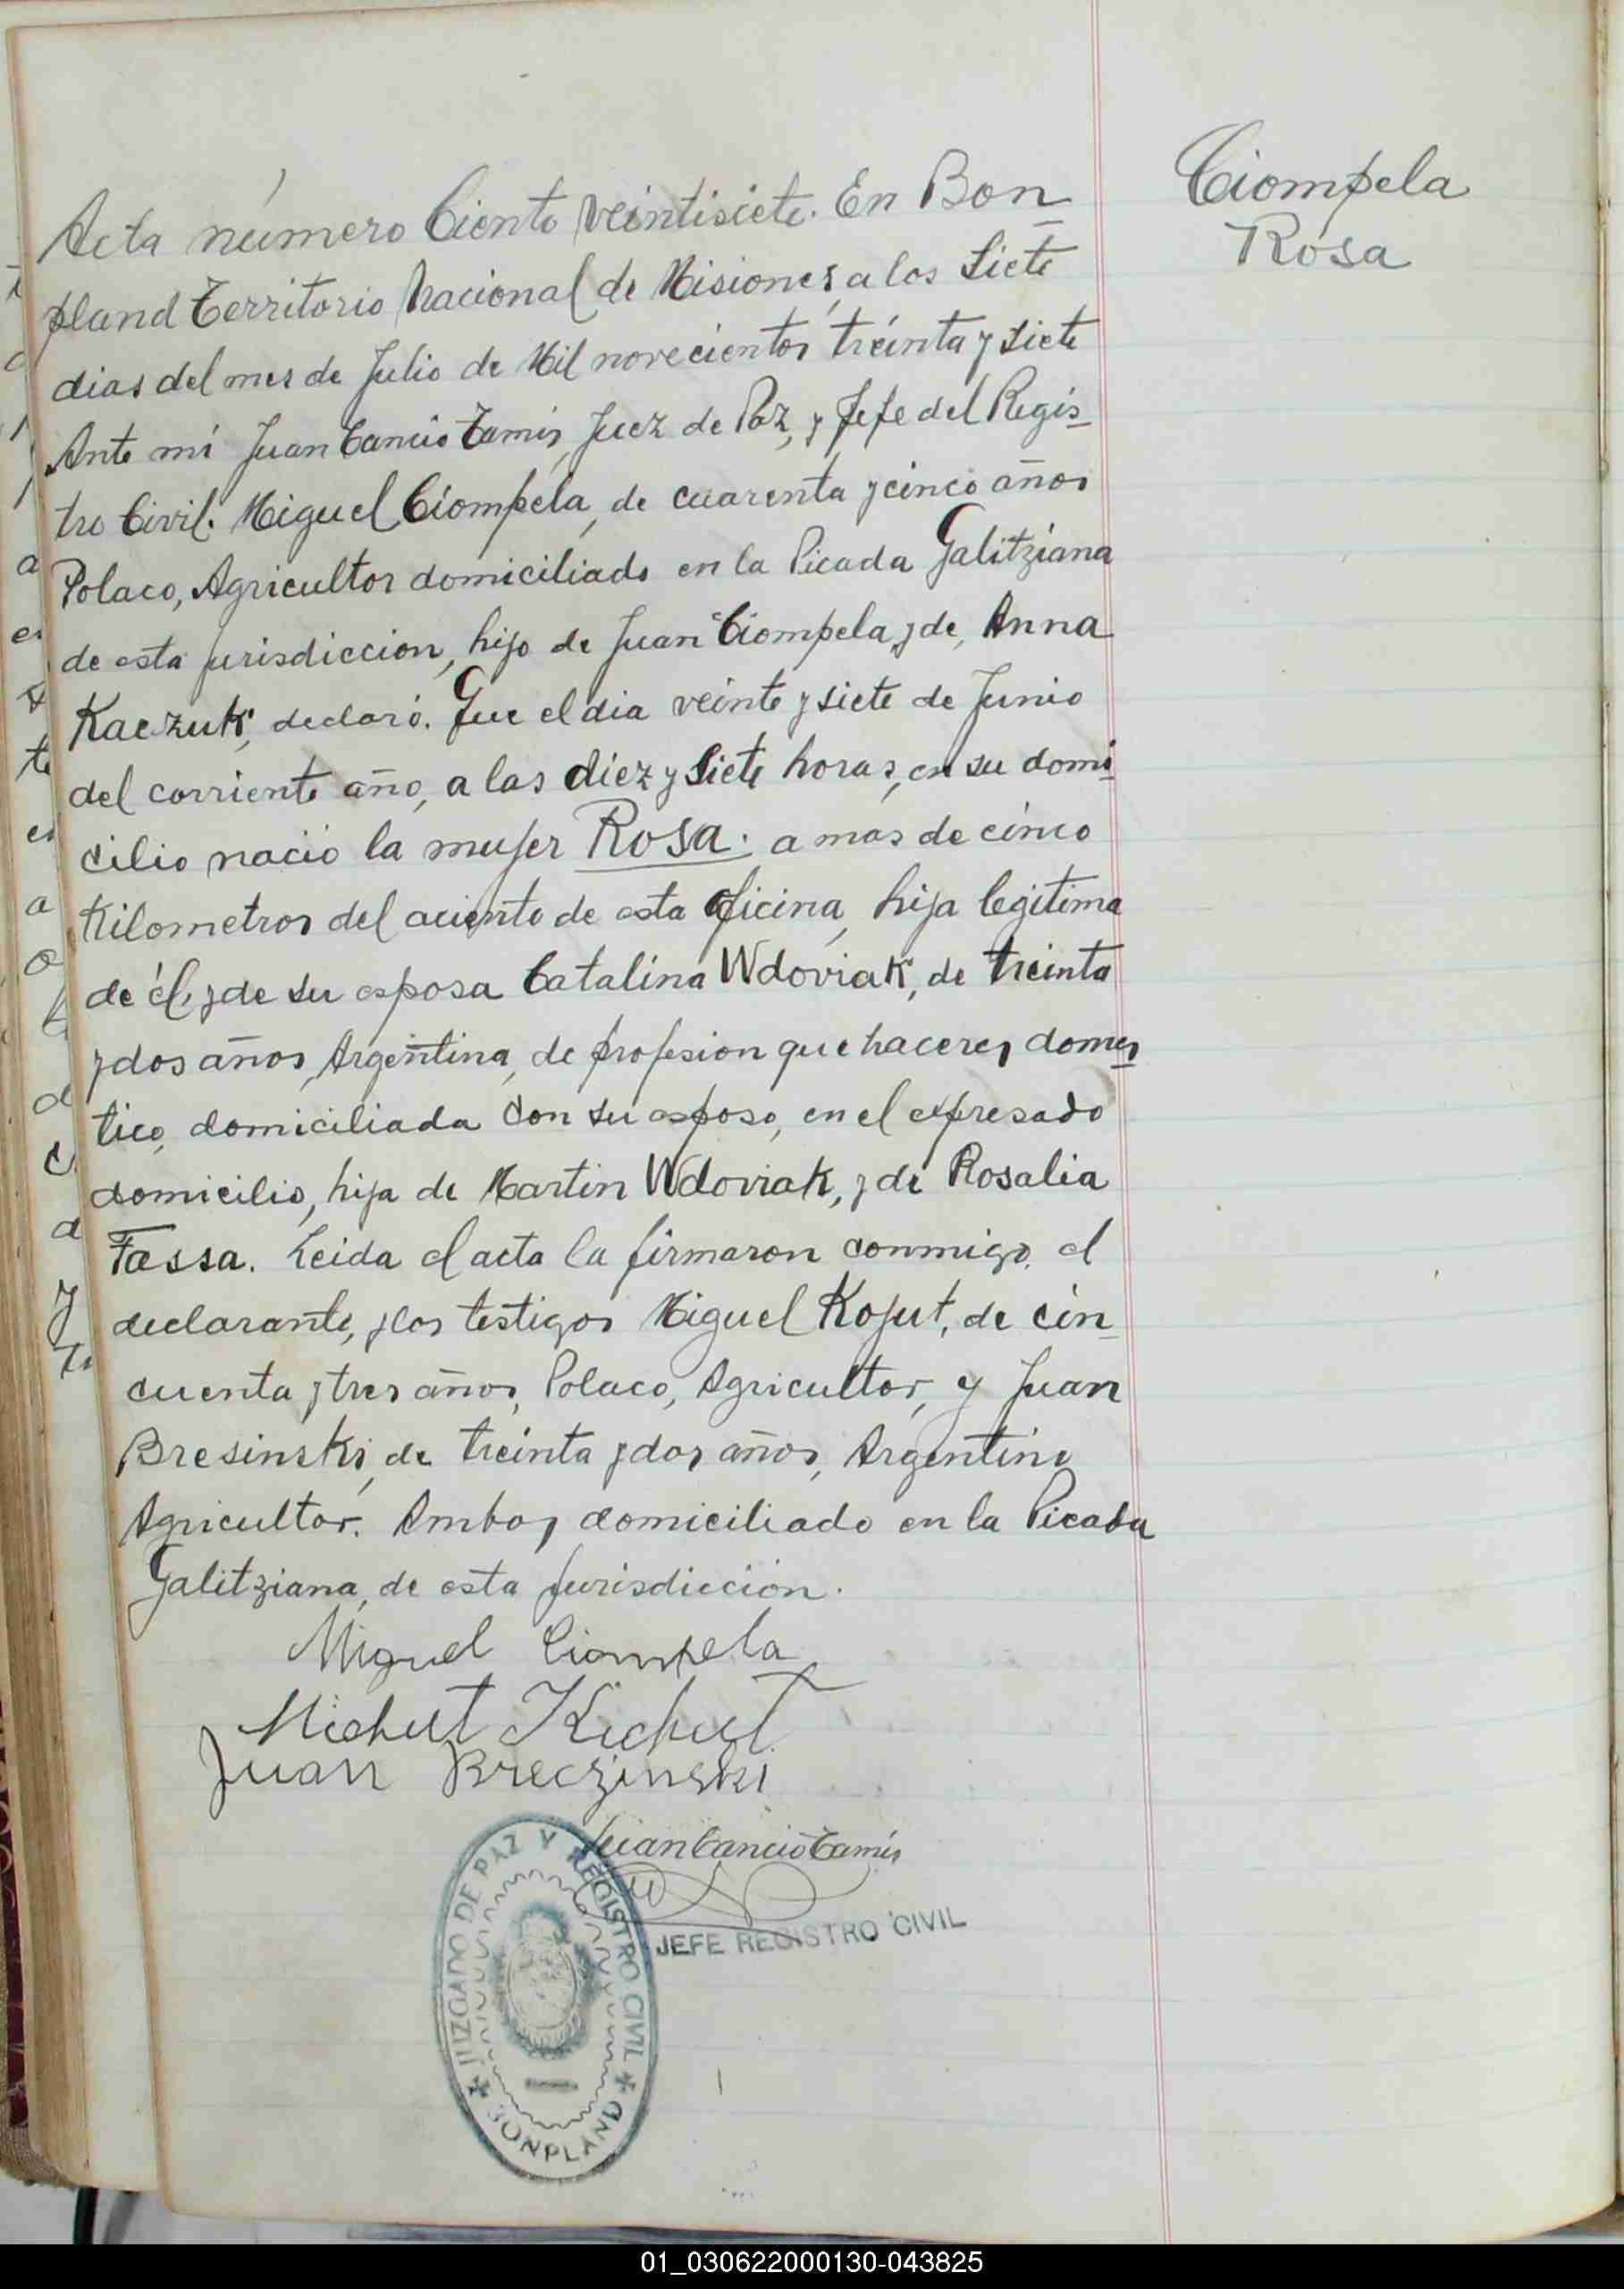 Ciompela
Rosa
Acta número Ciento veintisiete. En Bon
pland Territorio Nacional de Misiones, a los Siete
dias del mes de Julio de Mil novecientos treinta y siete
Ante mi Juan Cancio Tamis, Juez de Paz, y Jefe del Regis
tro Civil. Miguel Ciompela, de cuarenta y cinco años
Polaco, Agricultor domiciliado en la Picada Galitziana
de esta jurisdiccion, hijo de Juan Ciompela, y de, Anna
Kaczuk, declaró. Que el dia veinte y siete de Junio
del corriente año, a las diez y Siete horas, en su domi
cilio nació la mujer Rosa. a mas de cinco
Kilometros del aciento de esta oficina, hija legitima
de él, y de su esposa Catalina Wdoviak, de treinta
y dos años, Argentina, de profesion que haceres domes
tico, domiciliada con su esposo, en el expresado
domicilio, hija de Martin Wdoviak, y de Rosalia
Fassa. Leida el acta la firmaron conmigo, el
declarante, y los testigos Miguel Kojut, de cin
cuenta y tres años, Polaco, Agricultor, y Juan
Bresinski, de treinta y dos años, Argentino
Agricultor. Ambos domiciliado en la Picada
Galitziana, de esta jurisdicción.
Miguel Ciompela
Juan Breczinski
Juan Cancio Tamis
JEFE REGISTRO CIVIL
JUZGADO DE PAZ Y REGISTRO CIVIL
BONPLAND
01_030622000130-043825